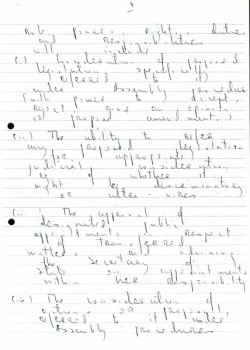 4
and powers, rights, duties
and responsibilities
will include
(i) Consideration of proposed
legislation specifically
referred to it
under Assembly procedure
(with power to accept,
reject, give an opinion
or propose amendments)
(ii) The ability to refer
any proposed legislation
for
judicial consideration
of whether it
might be discriminatory
or ultra-vires
(iii) The approval of
designated public
appointments in respect
of transferred
matters and advising
the Secretary of
State on appointments
within her responsibility
(iv) The consideration of
or proposals,
referred to it under
Assembly procedures